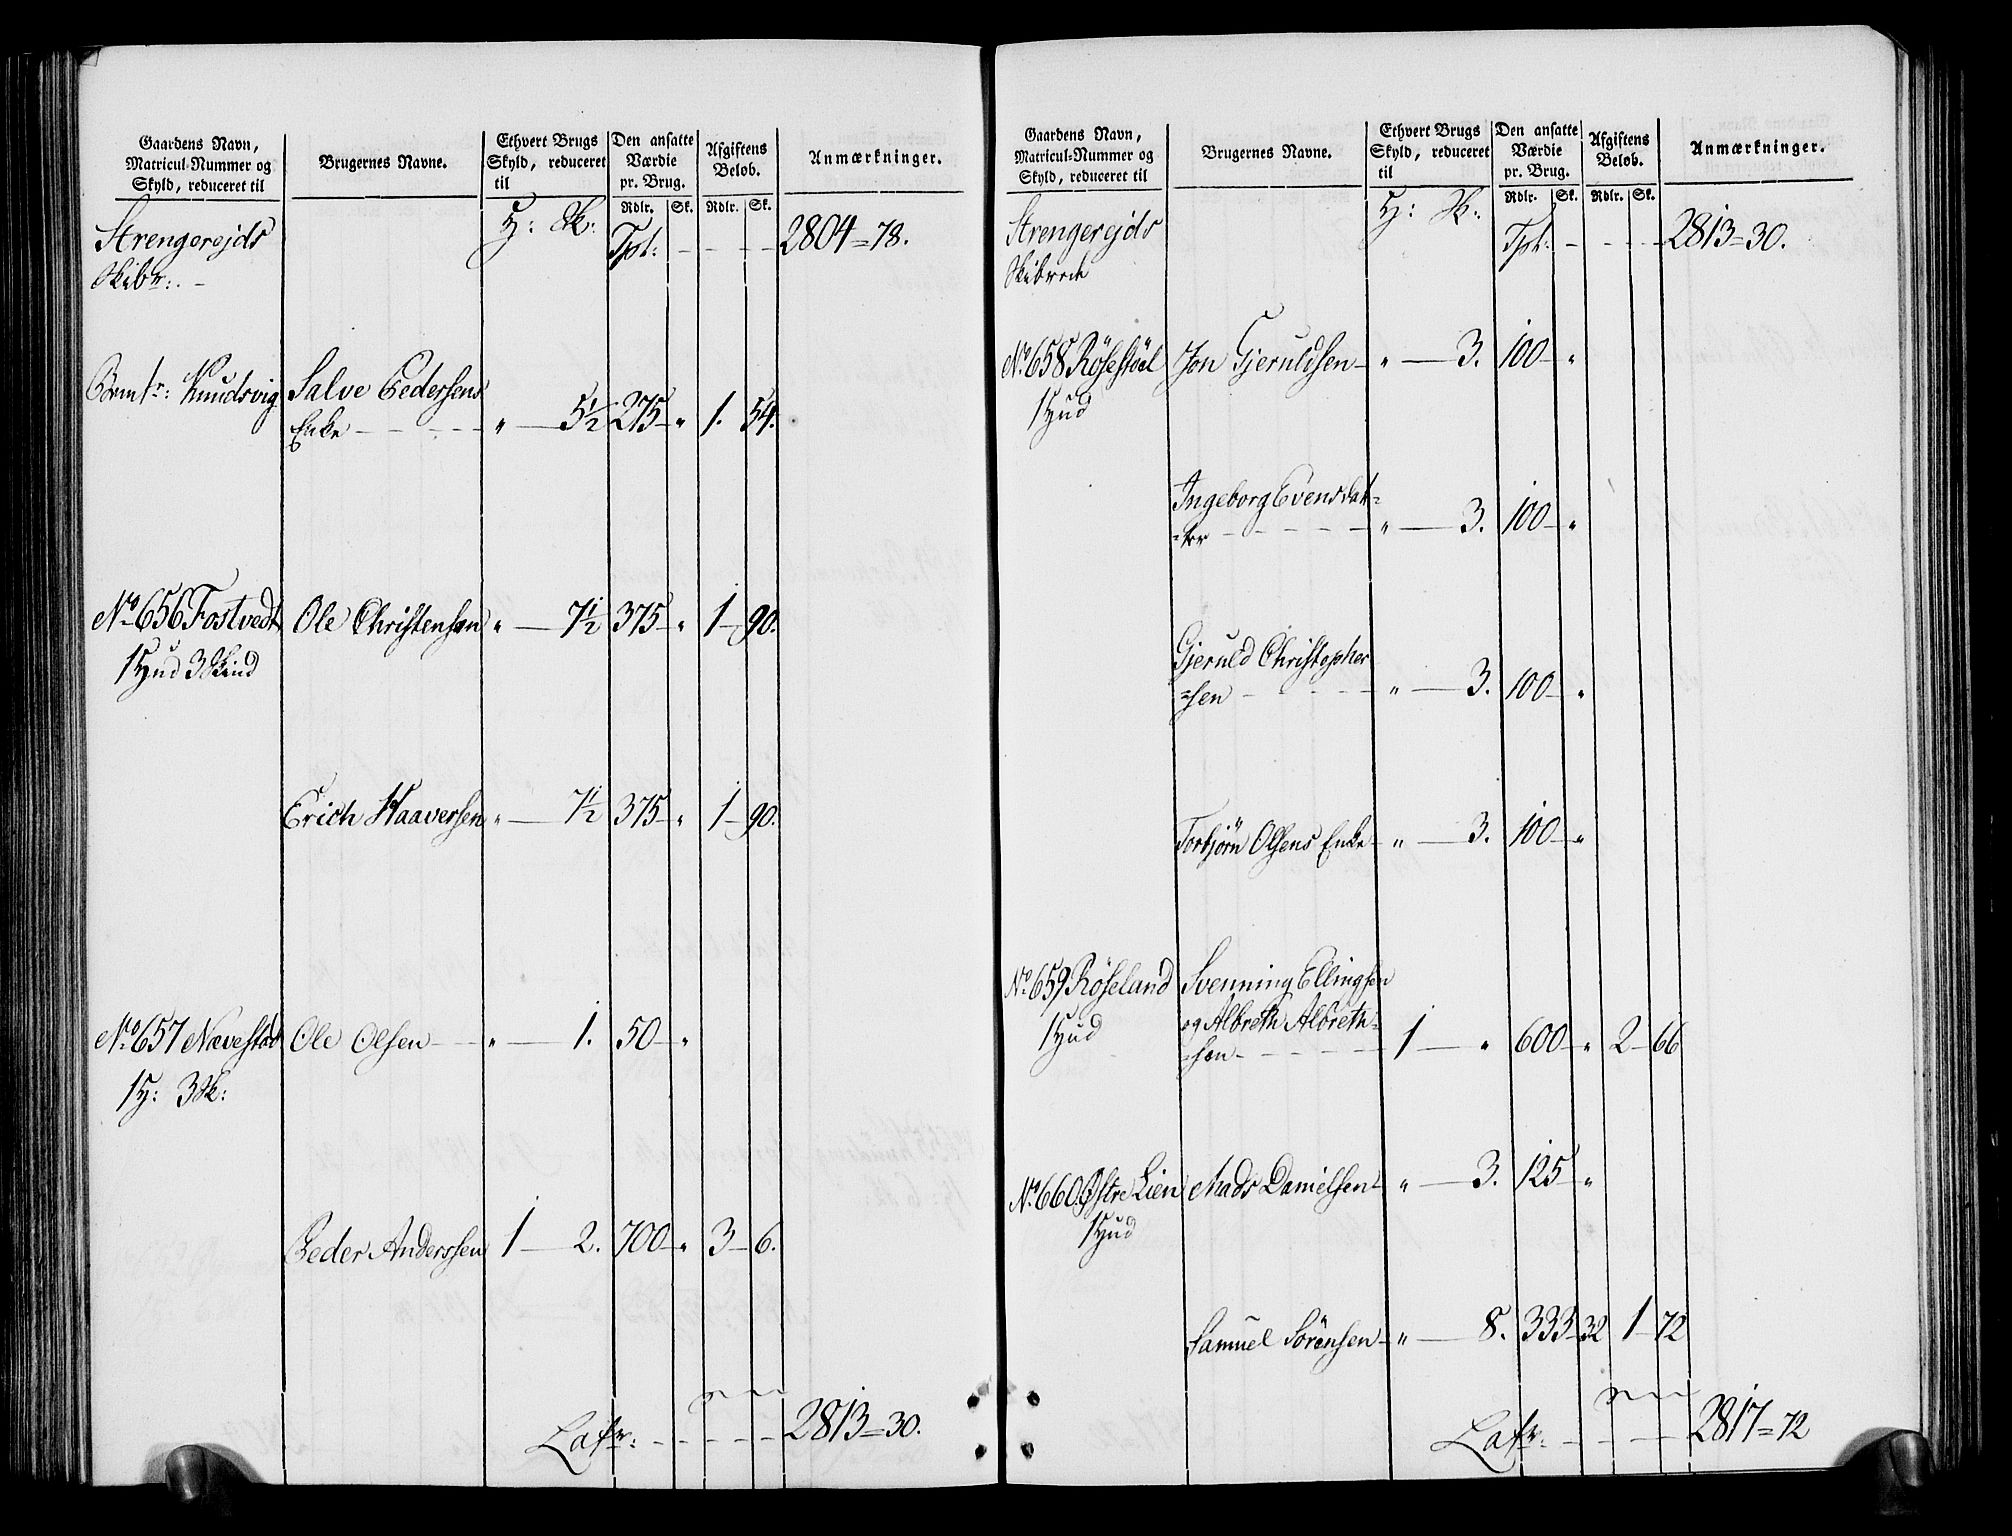 Gaardens Navn,
Matricul-Nummer og
Skyld, reduceret til
Brugernes Navne.
Ethvert Brugs
Skyld, reduceret
til
Den ansatte
Værdie
pr. Brug.
Afgiftens
Beløb.
Anmærkninger.
Rdlr. Sk. Rdlr. Sk.
Strengerejds H: Sk: Tpt: - - - - 2804=78.
Skibr: -
Knudsvig Salve Pedersens
Enke - - - - " — 5½ 275 - " 1. 54.
No 656 Fostvedt Ole Christensen " — 7½ 375 - " 1 - 90.
1 Hud 3 Skind
Erich Haaversen " — 7½ 375 - " 1 - 90.
No 657 Nævestad Ole Olsen - - " — 1. 50 - "
1 H: 3 Sk:
Peder Anderssen 1 — 2. 700 - " 3 - 6.
Lafr: - - - - 2813=30.
Gaardens Navn,
Matricul-Nummer og
Skyld, reduceret til
Brugernes Navne.
Ethvert Brugs
Skyld, reduceret
til
Den ansatte
Værdie
pr. Brug.
Afgiftens
Beløb.
Anmærkninger.
Rdlr. Sk. Rdlr. Sk.
Strengerejds H: Sk: Tpt: - - - - 2813=30.
Skibrede
No 658 Röseståel Jon Gjeruldsen - " — 3. 100 - "
1 Hud
Ingeborg Evensdat=
=ter - - - - " — 3. 100 - "
Gjeruld Christopher
=sen - - - - " — 3. 100 - "
Torbjörn Olsens Enke - " — 3. 100 - "
No 659 Röseland Svenning Ellingsen
1 Hud og Albreth Albreth=
=sen - - - - 1 — " 600 - " 2 - 66
No 660. Østre Lien Mads Danielsen - " — 3. 125 - "
1 Hud
Samuel Sörensen - " — 8. 333 - 32 1 - 72
Lafr: - - - - 2817=72